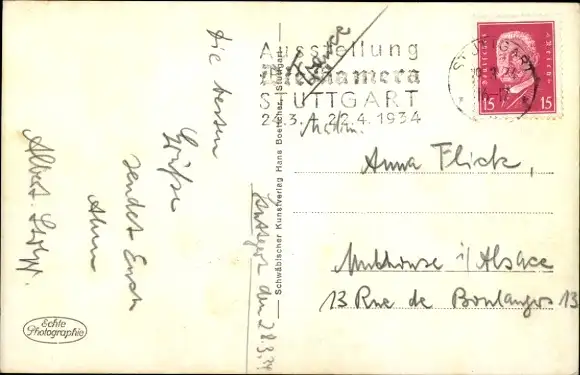 Die besten
Grüße
sendet Euch
Albert
Echte
Photographie
Stuttgart den 28.3.34
Schwäbischer Kunstverlag Hans Boettcher, Stuttgart
Ausstellung
Die Kamera
STUTTGART
24.3. 22.4.1934
STUTTGART
Deutsches Reich
15 15
Madm.
Anna Flick,
Mulhouse i/Alsace
13 Rue de Boulangers 13